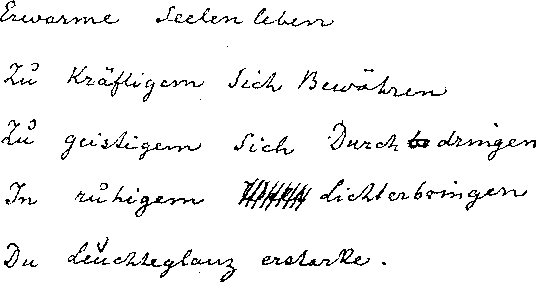 Erwarme Seelenleben
Zu Kräftigem Sich Bewähren
Zu geistigem Sich Durchdringen
In ruhigem Lichterbringen
Du Leuchteglanz erstarke.